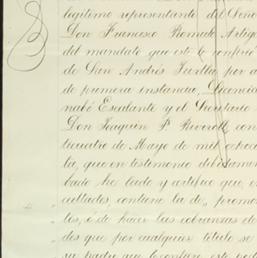 legítimo representante del Seño
Don Francisco Romull Artig
del mandato que este le confirió
de San Andrés Tuxtla por a
de primera instancia, Licencia
nabé Escalante y el Secretario
Don Joaquin P. Riveroll con
ticuatro de Mayo de mil ochoci
la, que en testimonio debidamen
bado he leido y certifico que en
cultades, contiene la de promo
tos, ó de hacer las cobranzas de
dos que por cualquier titulo se
su padre que le confiere este pod